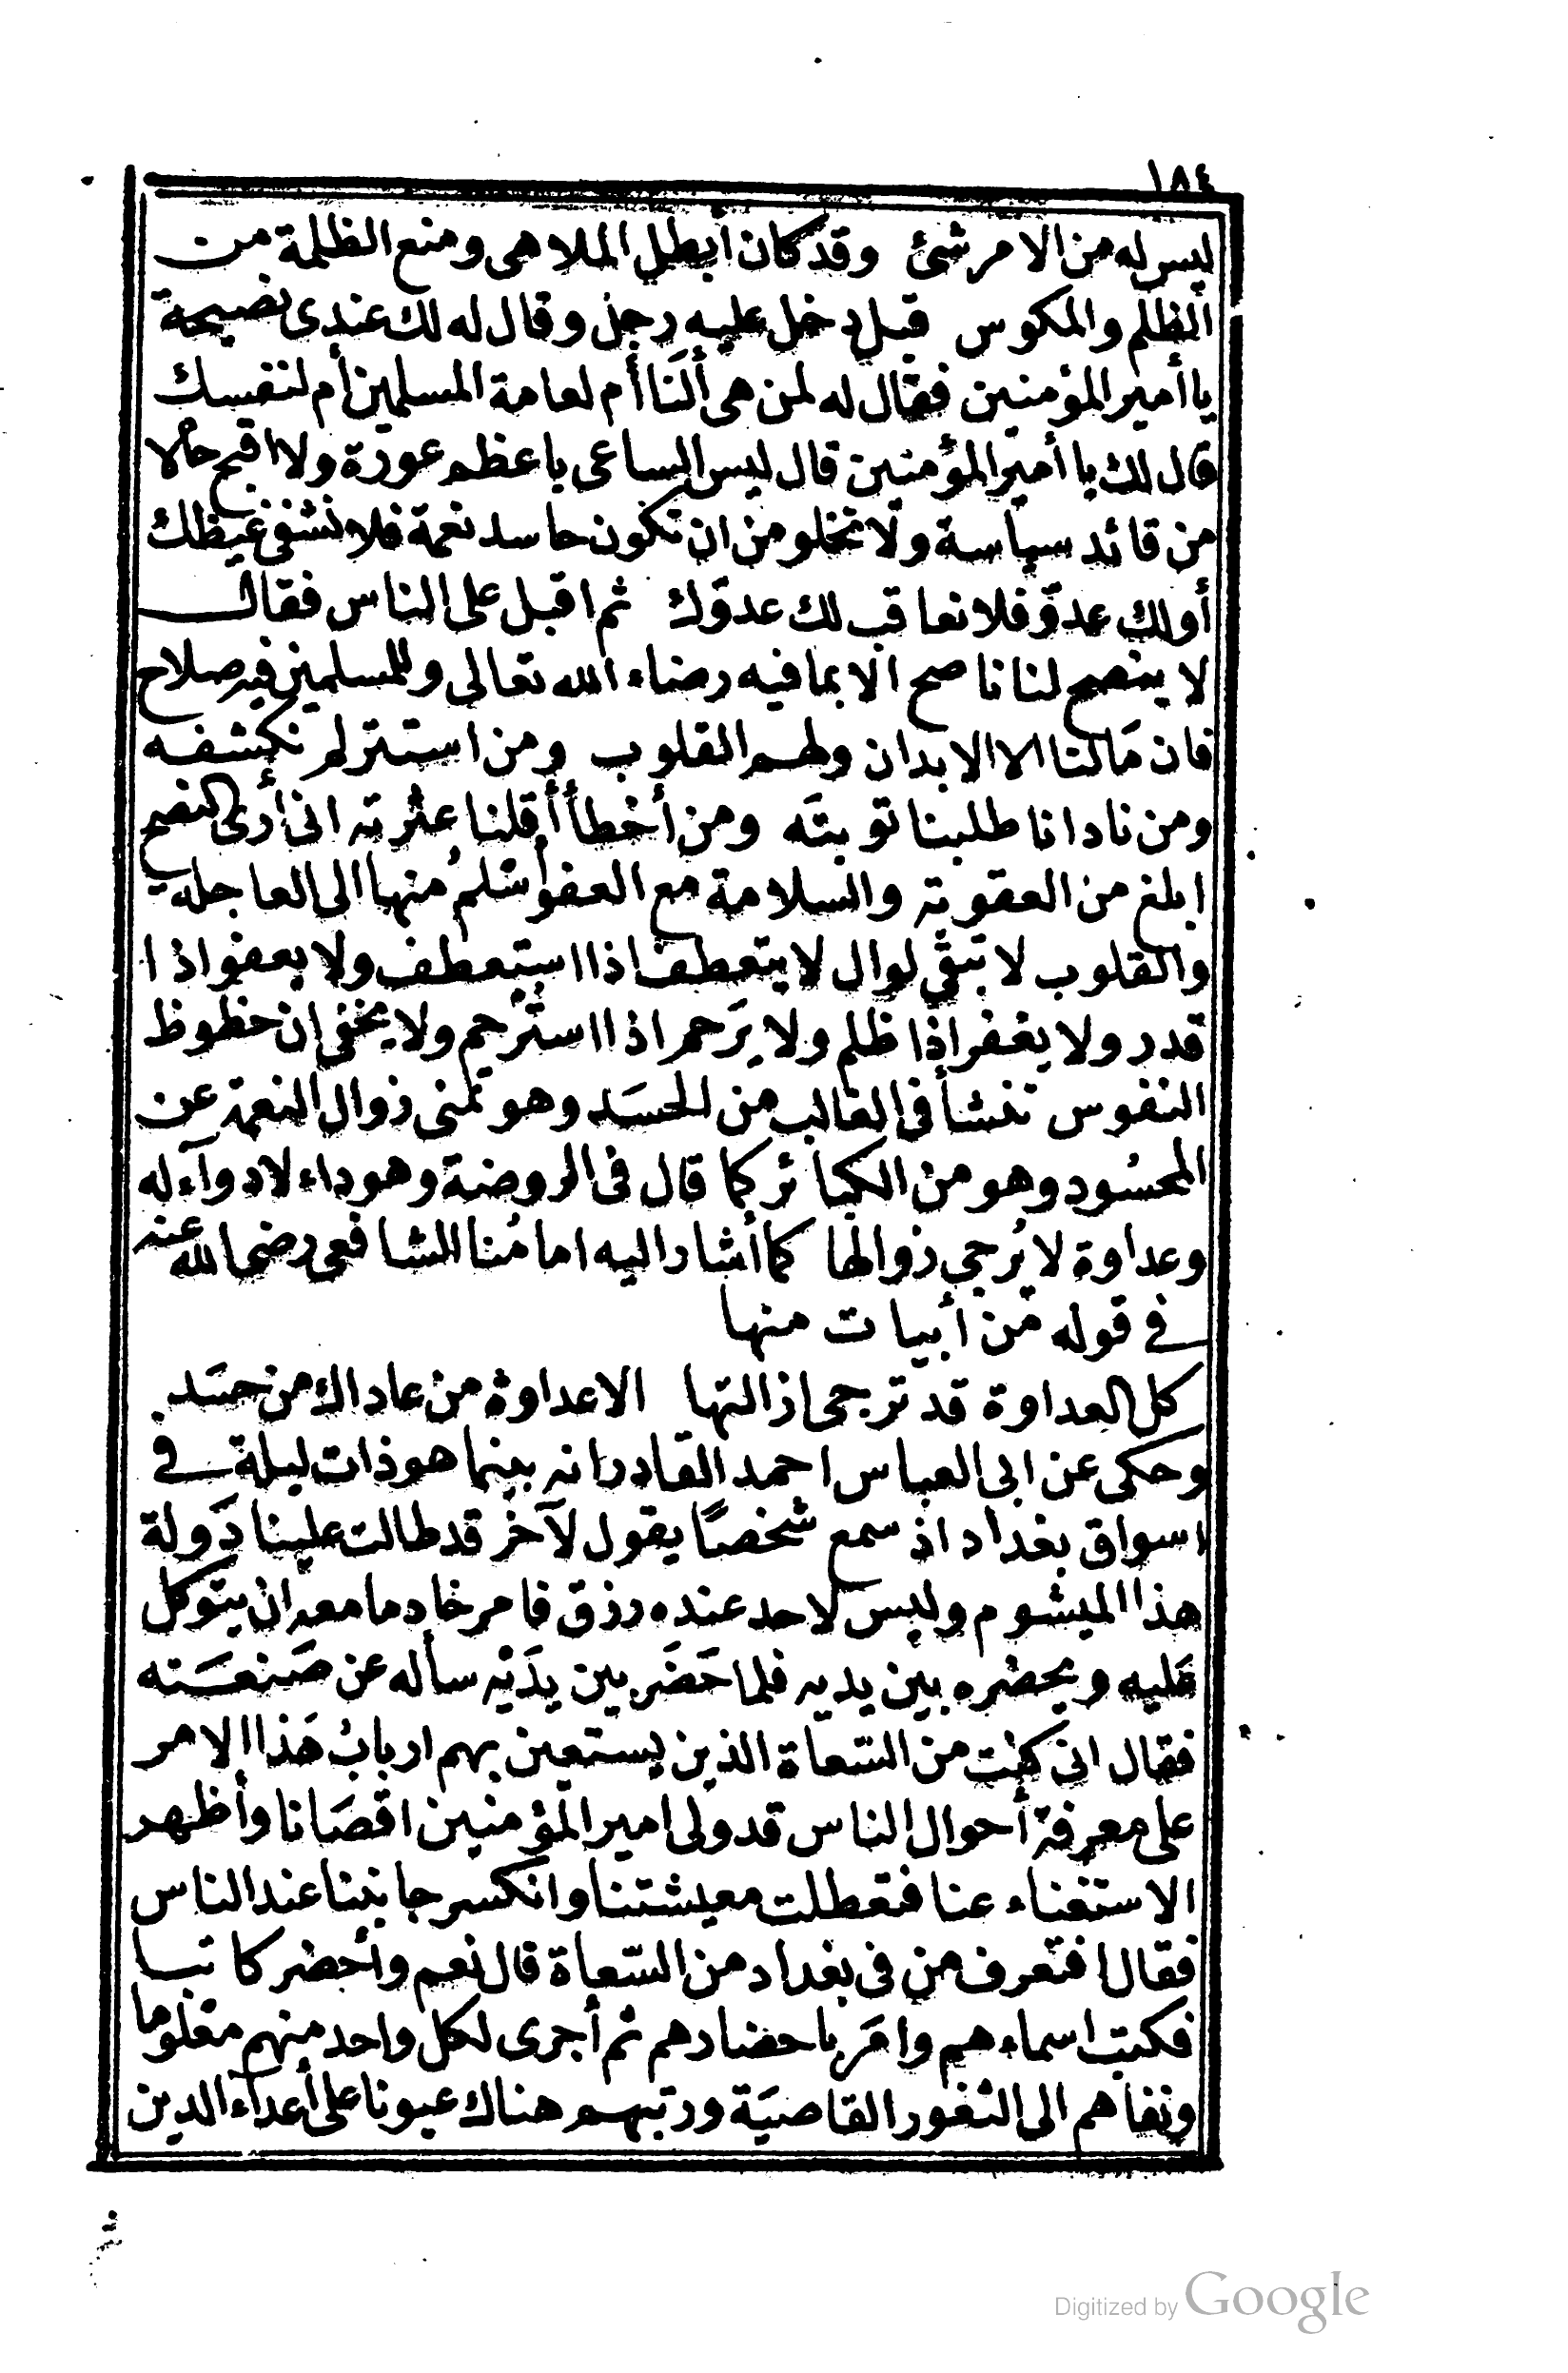 ١٨٤
ليس له من الامر شئ وقد كان أبطل الملاهى ومنع الظلمة من
الظلم والمكوس قيل دخل عليه رجل وقال له لك عندى نصيحة
يا أمير المؤمنين فقال له لمن هى ألَنا أم لعامة المسلمين أم لنفسك
قال لك يا أمير المؤمنين قال ليس الساعى باعظم عورة ولا اقبح حالا
من قائد سياسة ولا تخلو من ان تكون حاسد نعمة فلا نشفى غيظك
أو لك عدوّ فلا نعاقب لك عدوّك ثم اقبل على الناس فقال
لا ينصح لنا ناصح الا بما فيه رضاء الله تعالى وللمسلمين فيه صلاح
فان مَا لنا الا الابدان ولهم القلوب ومن استتر لم نكشفه
ومن نادانا طلبنا توبتَه ومن أخطأ أقلنا عثرته انى أرى النصح
ابلغ من العقوبة والسلامة مع العفو أسْلمُ منها الى العاجله
والقلوب لا تبقى لوال لا يتعطف اذا استعطف ولا يعفو اذا
قدر ولا يغفر اذا ظلم ولا يَرحم اذا استُرحم ولا يخفى ان حظوظ
النفوس تنشأ فى الغالب من الحسَد وهو تمنى زوال النعمة عن
المحسُود وهو من الكبائر كما قال فى الروضة وهو داء لا دوآء له
وعداوة لا يُرجى زوالها كما أشار اليه امامُنا الشافعى رضى الله عنه
فى قوله من أبيات منها
كل العداوة قد ترجى ازالتها الا عداوة من عاداك من حسَد
وحكى عن ابى العباس احمد القادر انه بينما هو ذات ليلة فى
اسواق بغداد اذ سمع شخصًا يقول لآخر قد طالت علينا دَولة
هذا الميشوم وليس لاحد عنده رزق فامر خادما معه ان يتوكل
عَليه ويحضره بين يديه فلما حَضَر بين يدَيْه سأله عن صَنعَته
فقال انى كنت من السّعاة الذين يستعين بهم اربابُ هَذا الامر
على معرفة أحوال الناس قد ولى امير المؤمنين اقصَانا وأظهر
الاستغناء عنا فتعطلت معيشتنا وانكسر جانبنا عند الناس
فقال افتعرف من فى بغداد من السّعاة قال نعم وأحضر كاتبا
فكتب اسماءهم وامَر باحضارهم ثم أجرى لكل واحد منهم مَعلوما
ونفاهم الى الثغور القاصيَة ورتبهم هناك عيونا على أعداء الدين
Digitized by Google